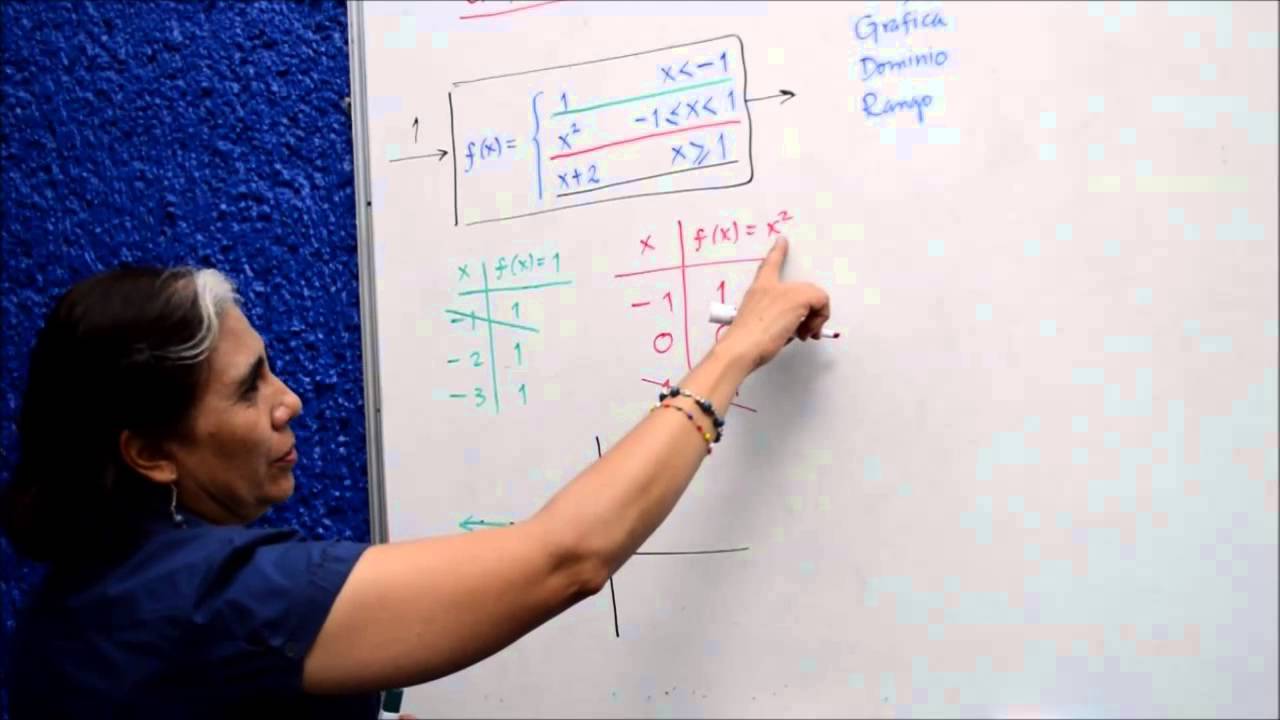 Gráfica
Dominio
Rango
1
f(x) = { 1 x < -1
x² -1 ≤ x < 1
x+2 x ⩾ 1
x f(x) = 1
-1 1
-2 1
-3 1
x f(x) = x²
-1 1
0